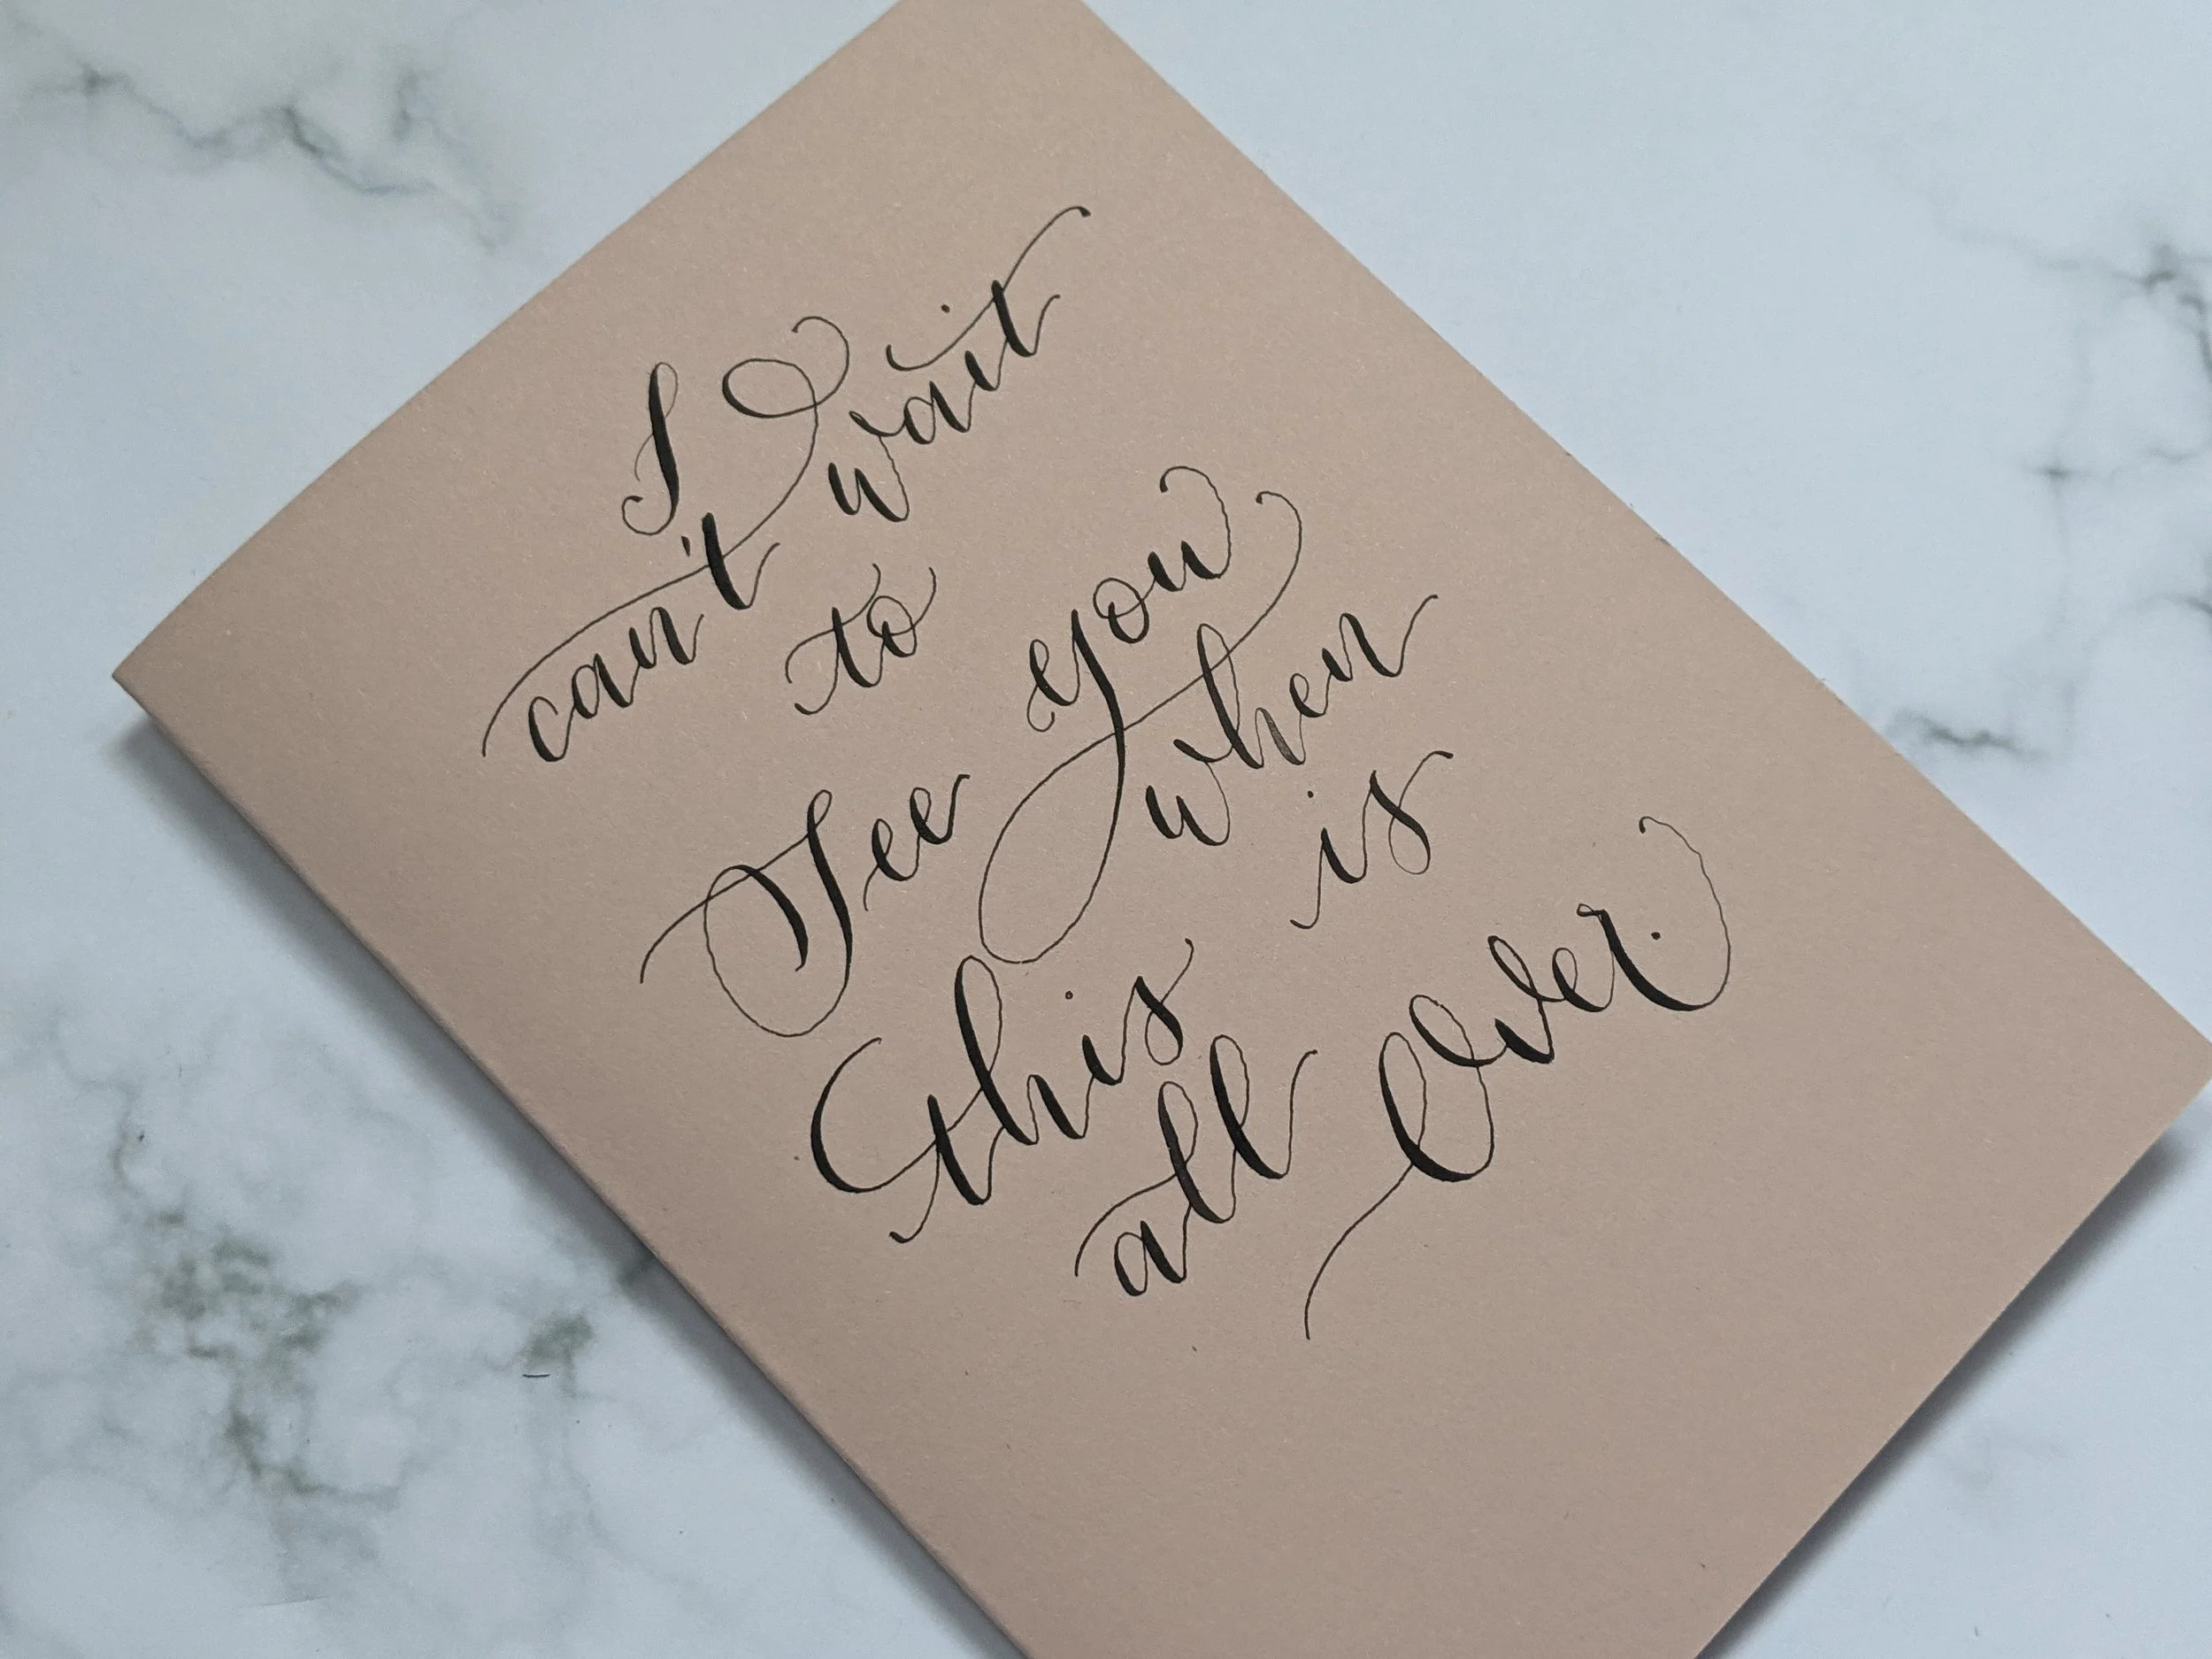 I
can't wait
to
See you
when
this is
all Over.